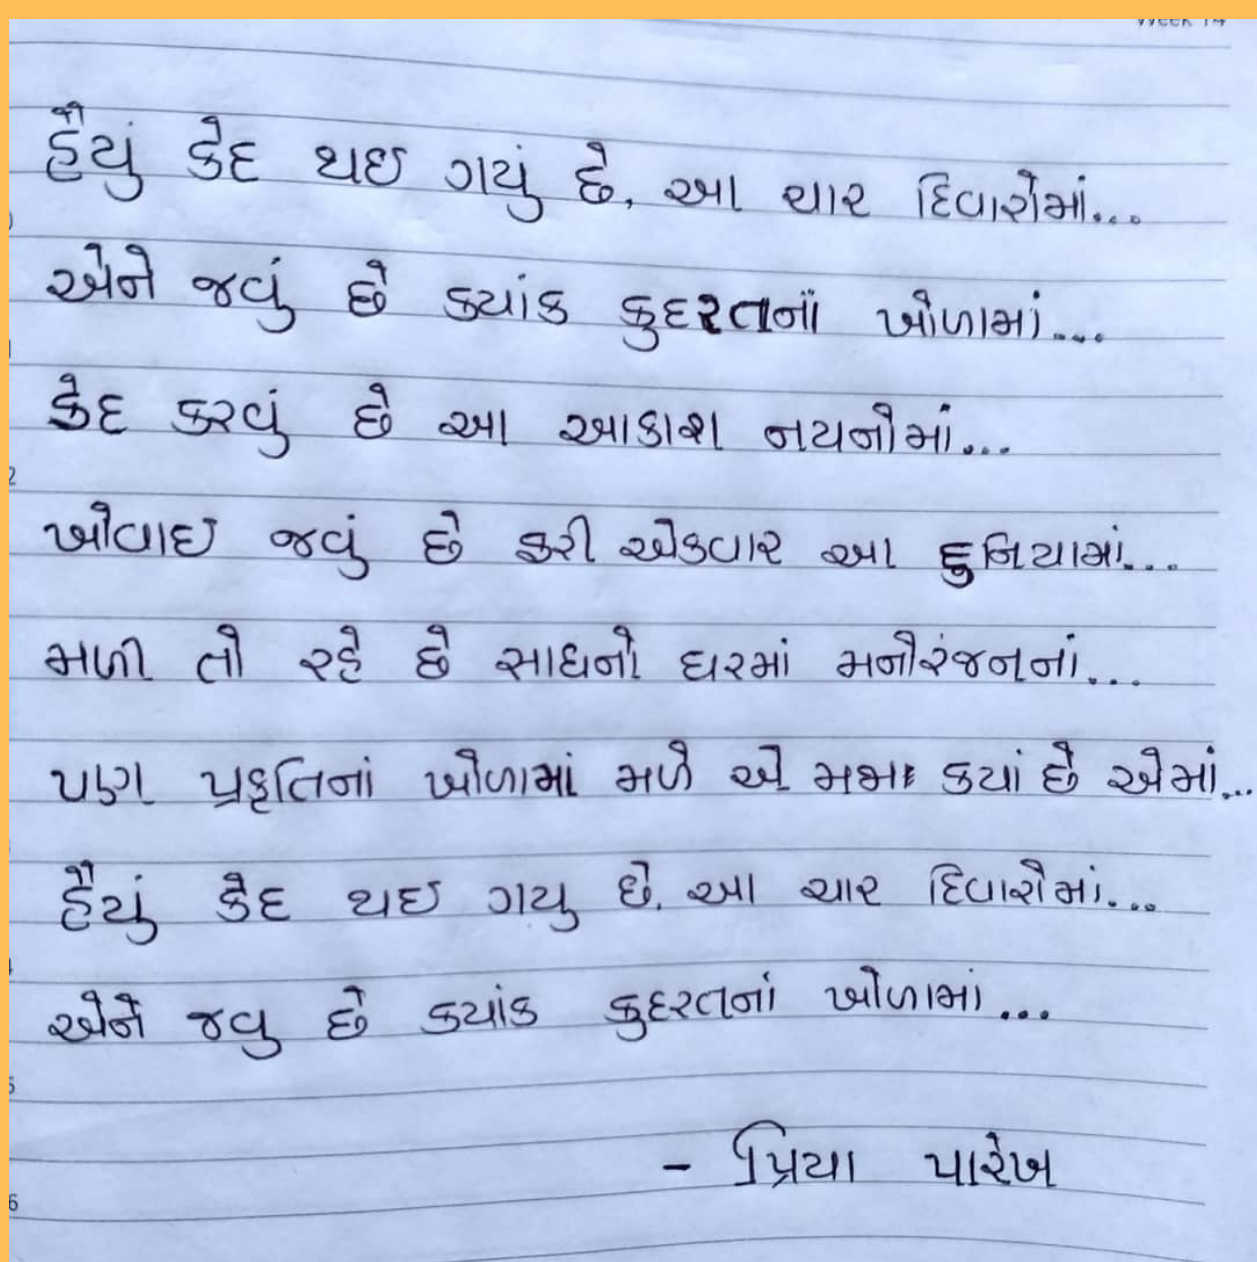 Week 14
હૈયું કેદ થઇ ગયું છે, આ ચાર દિવારોમાં...
એને જવું છે કયાંક કુદરતનાં ખોળામાં....
કેદ કરવું છે આ આકાશ નયનોમાં...
ખોવાઇ જવું છે ફરી એકવાર આ દુનિયામાં...
મળી તો રહે છે સાધનો ઘરમાં મનોરંજનનાં...
પણ પ્રકૃતિનાં ખોળામાં મળે એ મજા કયાં છે એમાં...
હૈયું કેદ થઇ ગયુ છે. આ ચાર દિવારોમાં...
એને જવુ છે કયાંક કુદરતનાં ખોળામાં...
- પ્રિયા પારેખ